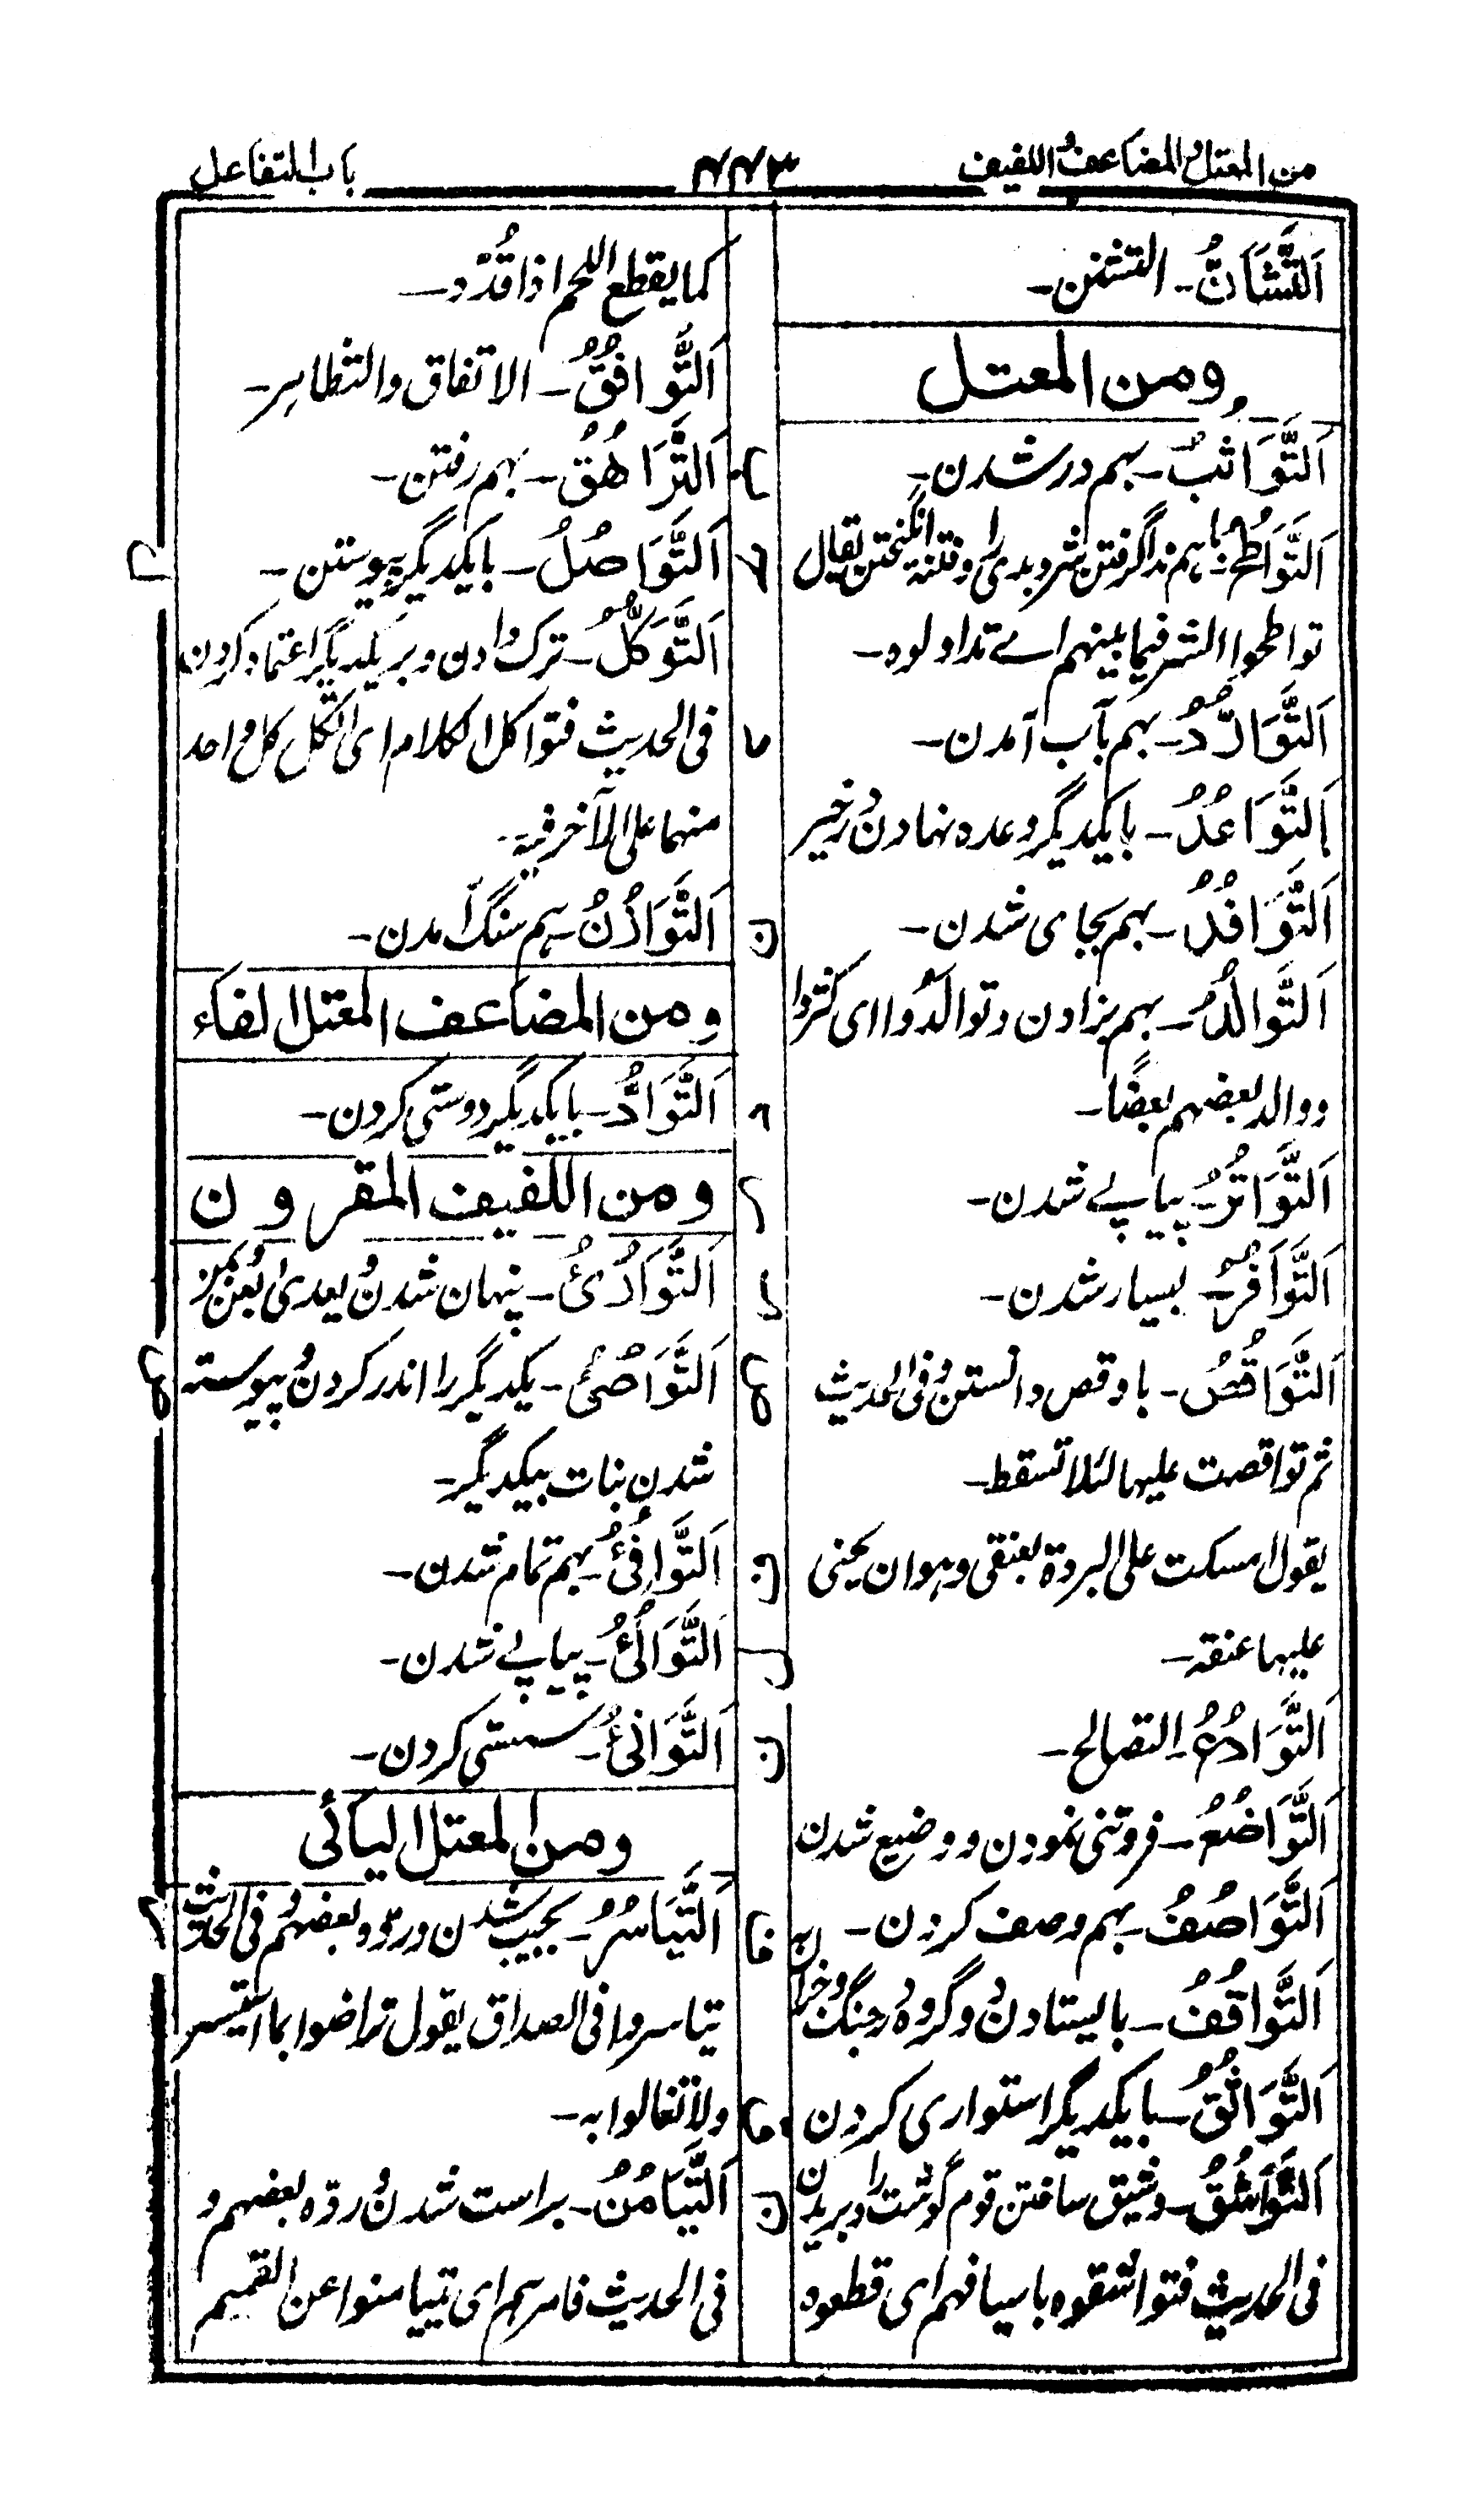 من المعتل والمضاعف واللفيف
۷۷۳
باب التفاعل
اَلتَّشَانُّ۔ التشنن۔
ومن المعتل
اَلتَّوَاثُبُ۔ بہم درشدن۔
اَلتَّوَاطُحُ۔ باہم فراگرفتن شر و بدی را و فتنہ انگیختن یقال
تواطحوا الشر فیما بینہم اے تداولوہ۔
اَلتَّوَارُدُ۔ بہم بآب آمدن۔
اَلتَّوَاعُدُ۔ بایکدیگر وعدہ نہادن در خیر
اَلتَّوَافُدُ۔ بہم بجای شدن۔
اَلتَّوَالُدُ۔ بہم بزادن و توالَدُوا ای کثروا
و والد بعضہم بعضًا۔
اَلتَّوَاتُرُ۔ پیاپے شدن۔
اَلتَّوَافُرُ۔ بسیار شدن۔
اَلتَّوَاقُصُ۔ با وقص وانستن و فی الحدیث
ثم تواقصت علیہا لئلا تسقط۔
یقول امسکت علی البردۃ بعنقی و ہو ان یحنی
علیہا عنقہ۔
اَلتَّوَادُعُ۔ التصالح۔
اَلتَّوَاضُعُ۔ فروتنی نمودن و وضیع شدن
اَلتَّوَاصُفُ۔ بہم وصف کردن۔
اَلتَّوَاقُفُ۔ بایستادن دو گروہ در جنگ و جزآن
اَلتَّوَاثُقُ۔ بایکدیگر استواری کردن
اَلتَّوَاشُقُ۔ وشیق ساختن قوم گوشت را و بریدن
فی الحدیث فتواشقوہ باسیافہم ای قطعوہ
کما یقطع اللحم اذا قُدِّدَ۔
اَلتَّوَافُقُ۔ الاتفاق والتظاہر۔
اَلتَّوَاهُقُ۔ بہم رفتن۔
اَلتَّوَاصُلُ۔ بایکدیگر پیوستن۔
اَلتَّوَاكُلُ۔ ترک دادن و بر یکدیگر اعتماد کردن
فی الحدیث فتواکلا الکلام ای اتکل کل واحد
منہما علی الآخر فیہ۔
اَلتَّوَازُنُ۔ ہم سنگ آمدن۔
ومن المضاعف المعتل الفاء
اَلتَّوَادُّ۔ بایکدیگر دوستی کردن۔
ومن اللفيف المقرون
اَلتَّوَارُیُ۔ پنہان شدن و یعدی بعن و بمن
اَلتَّوَاصُیُ۔ یکدیگر را اندرز کردن و پیوستہ
شدن نبات بیکدیگر۔
اَلتَّوَافُیُ۔ بہم تمام شدن۔
اَلتَّوَالُیُ۔ پیاپے شدن۔
اَلتَّوَانُیُ۔ سستی کردن۔
ومن المعتل اليائى
اَلتَّيَاسُرُ۔ بچپ شدن و ردّہ بعضہم فی الحدیث
تیاسروا فی الصداق یقول تراضوا بما استیسر
ولا تغالوا بہ۔
اَلتَّيَامُنُ۔ براست شدن و ردّہ بعضہم و
فی الحدیث فامرہم ای یتیامنوا عن الغمیم